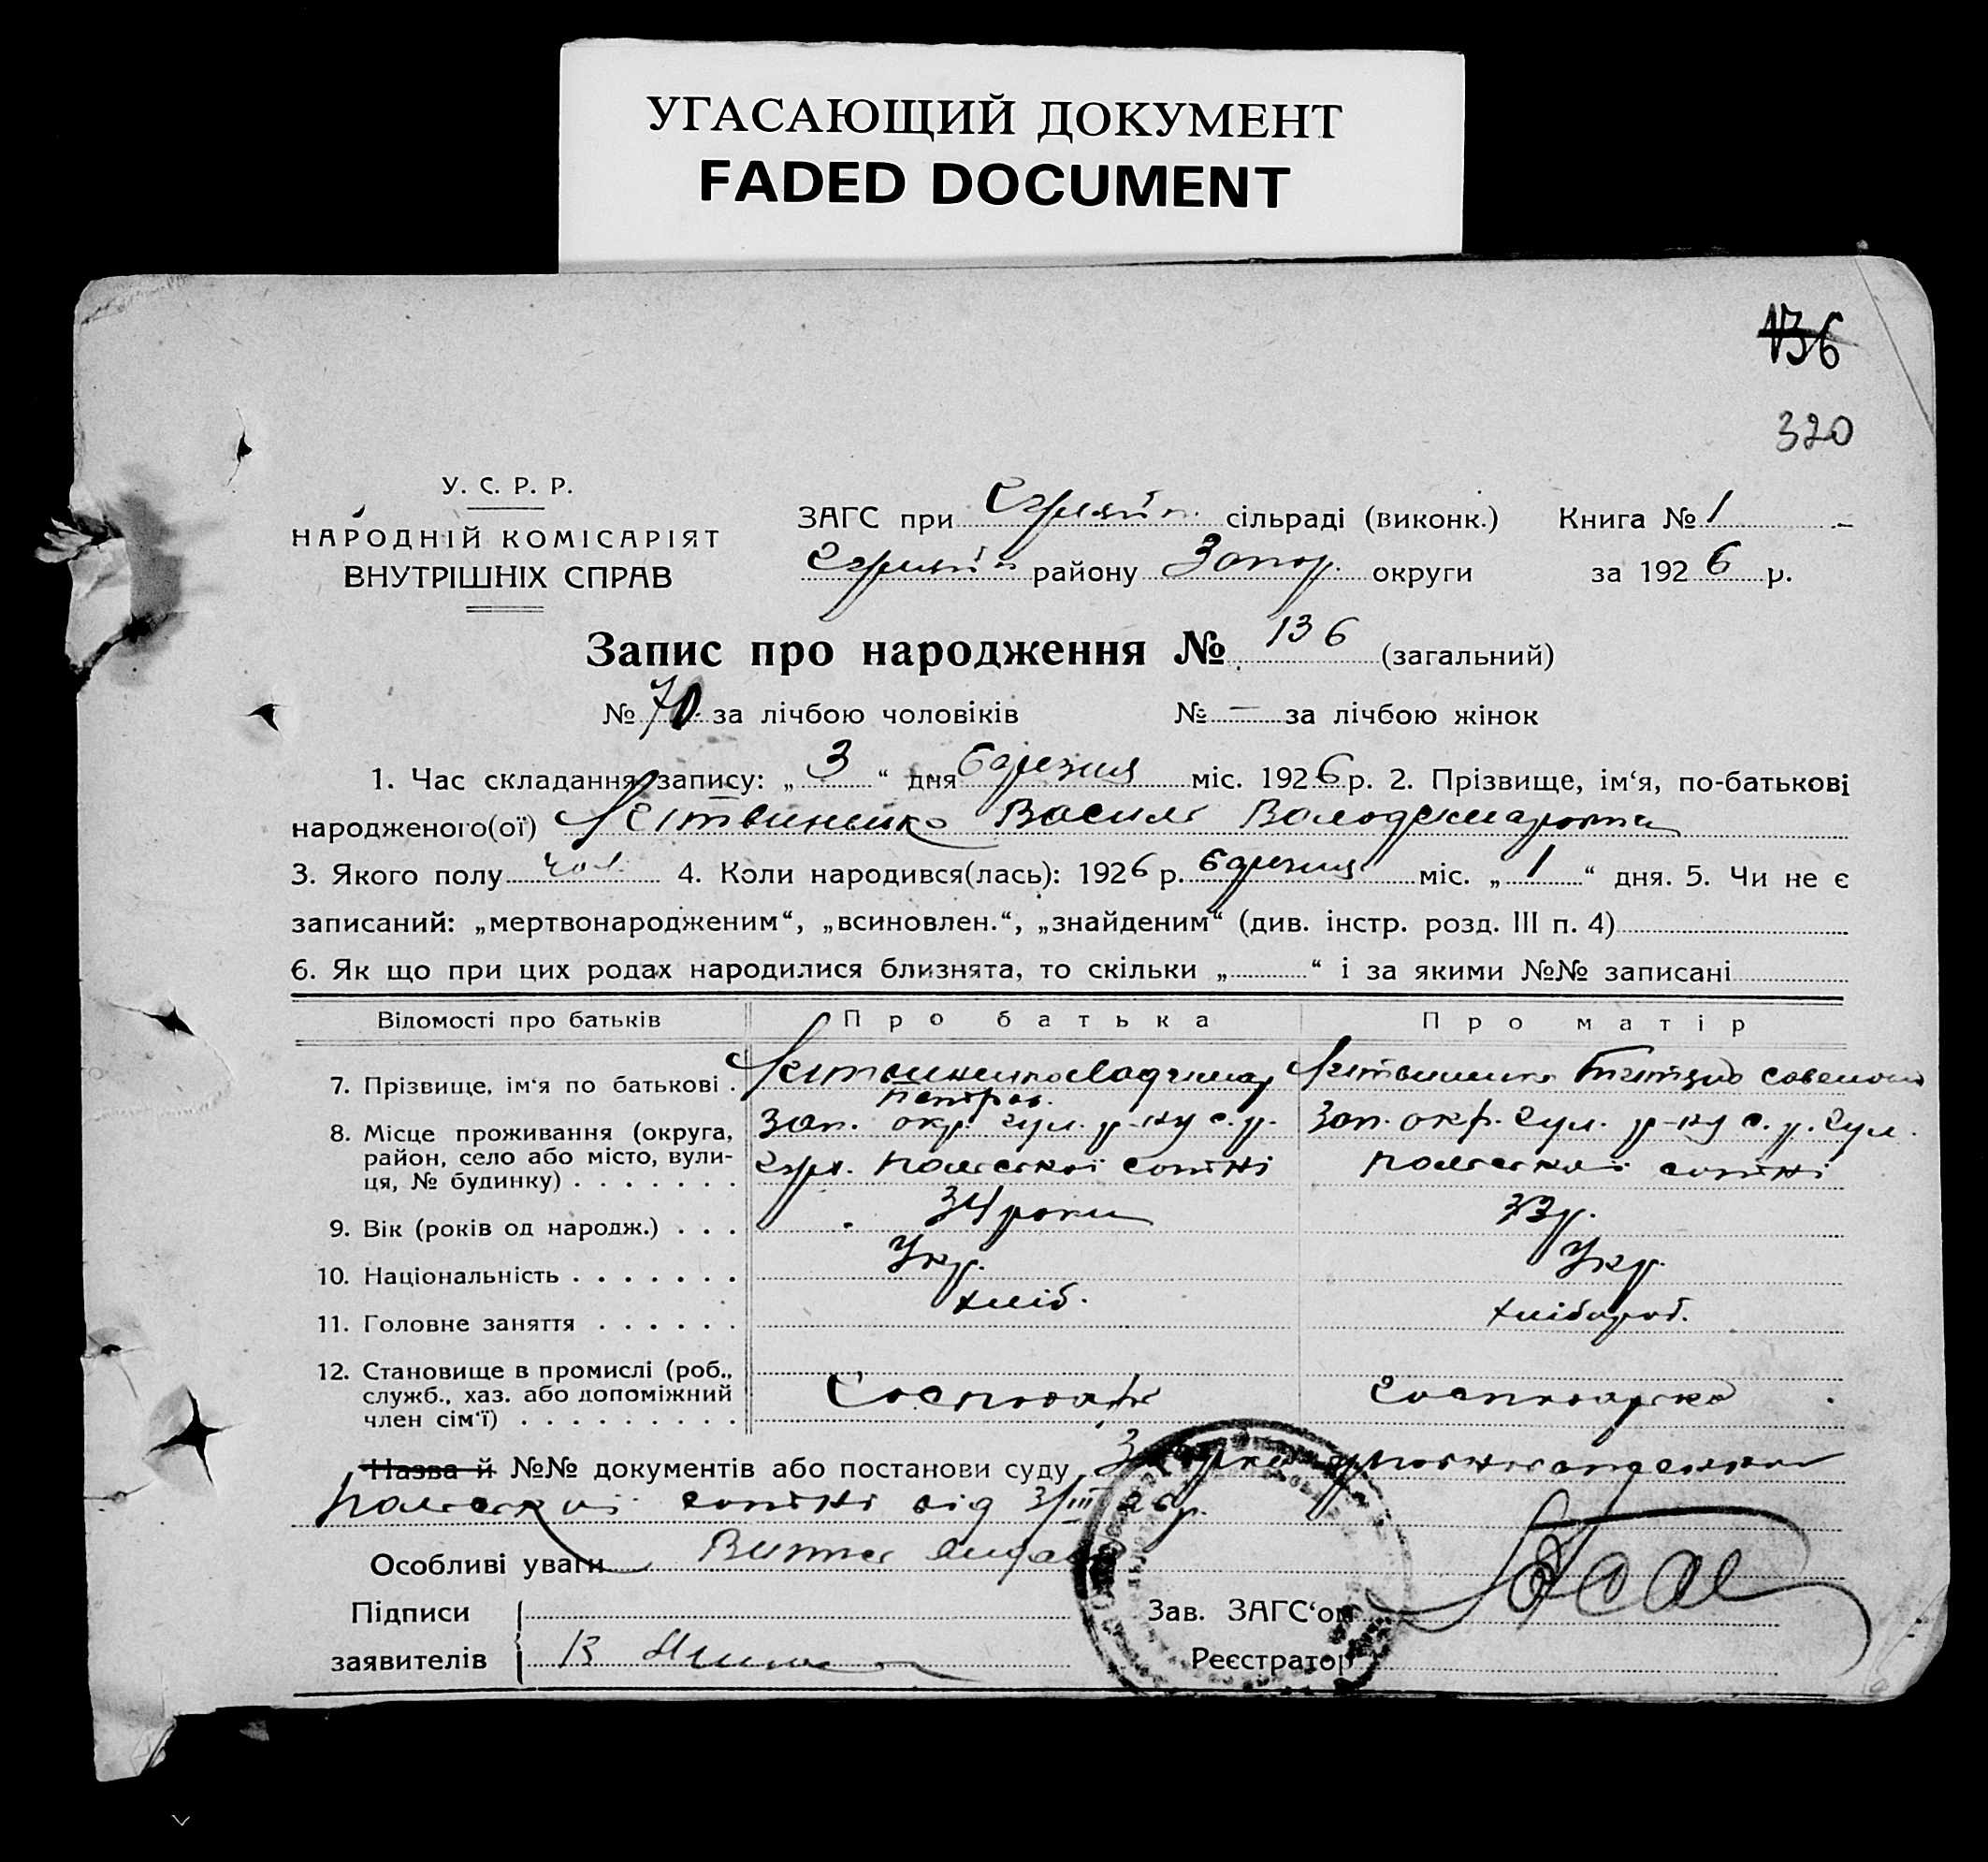 УГАСАЮЩИЙ ДОКУМЕНТ
FADED DOCUMENT
136
320
У. С. Р. Р.
НАРОДНІЙ КОМІСАРІЯТ
ВНУТРІШНІХ СПРАВ
ЗАГС при сільраді (виконк.) Книга № 1
району Запор. округи за 1926 р.
Запис про народження № 136 (загальний)
№ 70 за лічбою чоловіків № — за лічбою жінок
1. Час складання запису: „ 3 “ дня березня міс. 1926 р. 2. Прізвище, ім‘я, по-батькові
народженого(ої) Литвиненко Василь Володимирович
3. Якого полу чол. 4. Коли народився(лась): 1926 р. березня міс. „ 1 “ дня. 5. Чи не є
записаний: „мертвонародженим“, „всиновлен.“, „знайденим“ (див. інстр. розд. III п. 4)
6. Як що при цих родах народилися близнята, то скільки „ “ і за якими №№ записані
Відомості про батьків Про батька Про матір
7. Прізвище, ім‘я по батькові . Литвиненко Володимир Петров. Литвиненко
8. Місце проживання (округа, Зап. окр. Гул. р-ну с. р. Зап. окр. Гул. р-ну с. р. Гул.
район, село або місто, вули- Гул. сотні сотні
ця, № будинку) . . . . . . .
9. Вік (років од народж.) . . . 34 роки 33 р.
10. Національність . . . . . . . Укр. Укр.
11. Головне заняття . . . . . . хліб. хлібороб.
12. Становище в промислі (роб., служб., хаз. або допоміжний Господар Господарка
член сім‘ї) . . . . . . . . .
Назва й №№ документів або постанови суду
сотні від 3/III 26 р.
Особливі уваги Витяг видан
Підписи
заявителів В
Зав. ЗАГС‘ом
Реєстратор